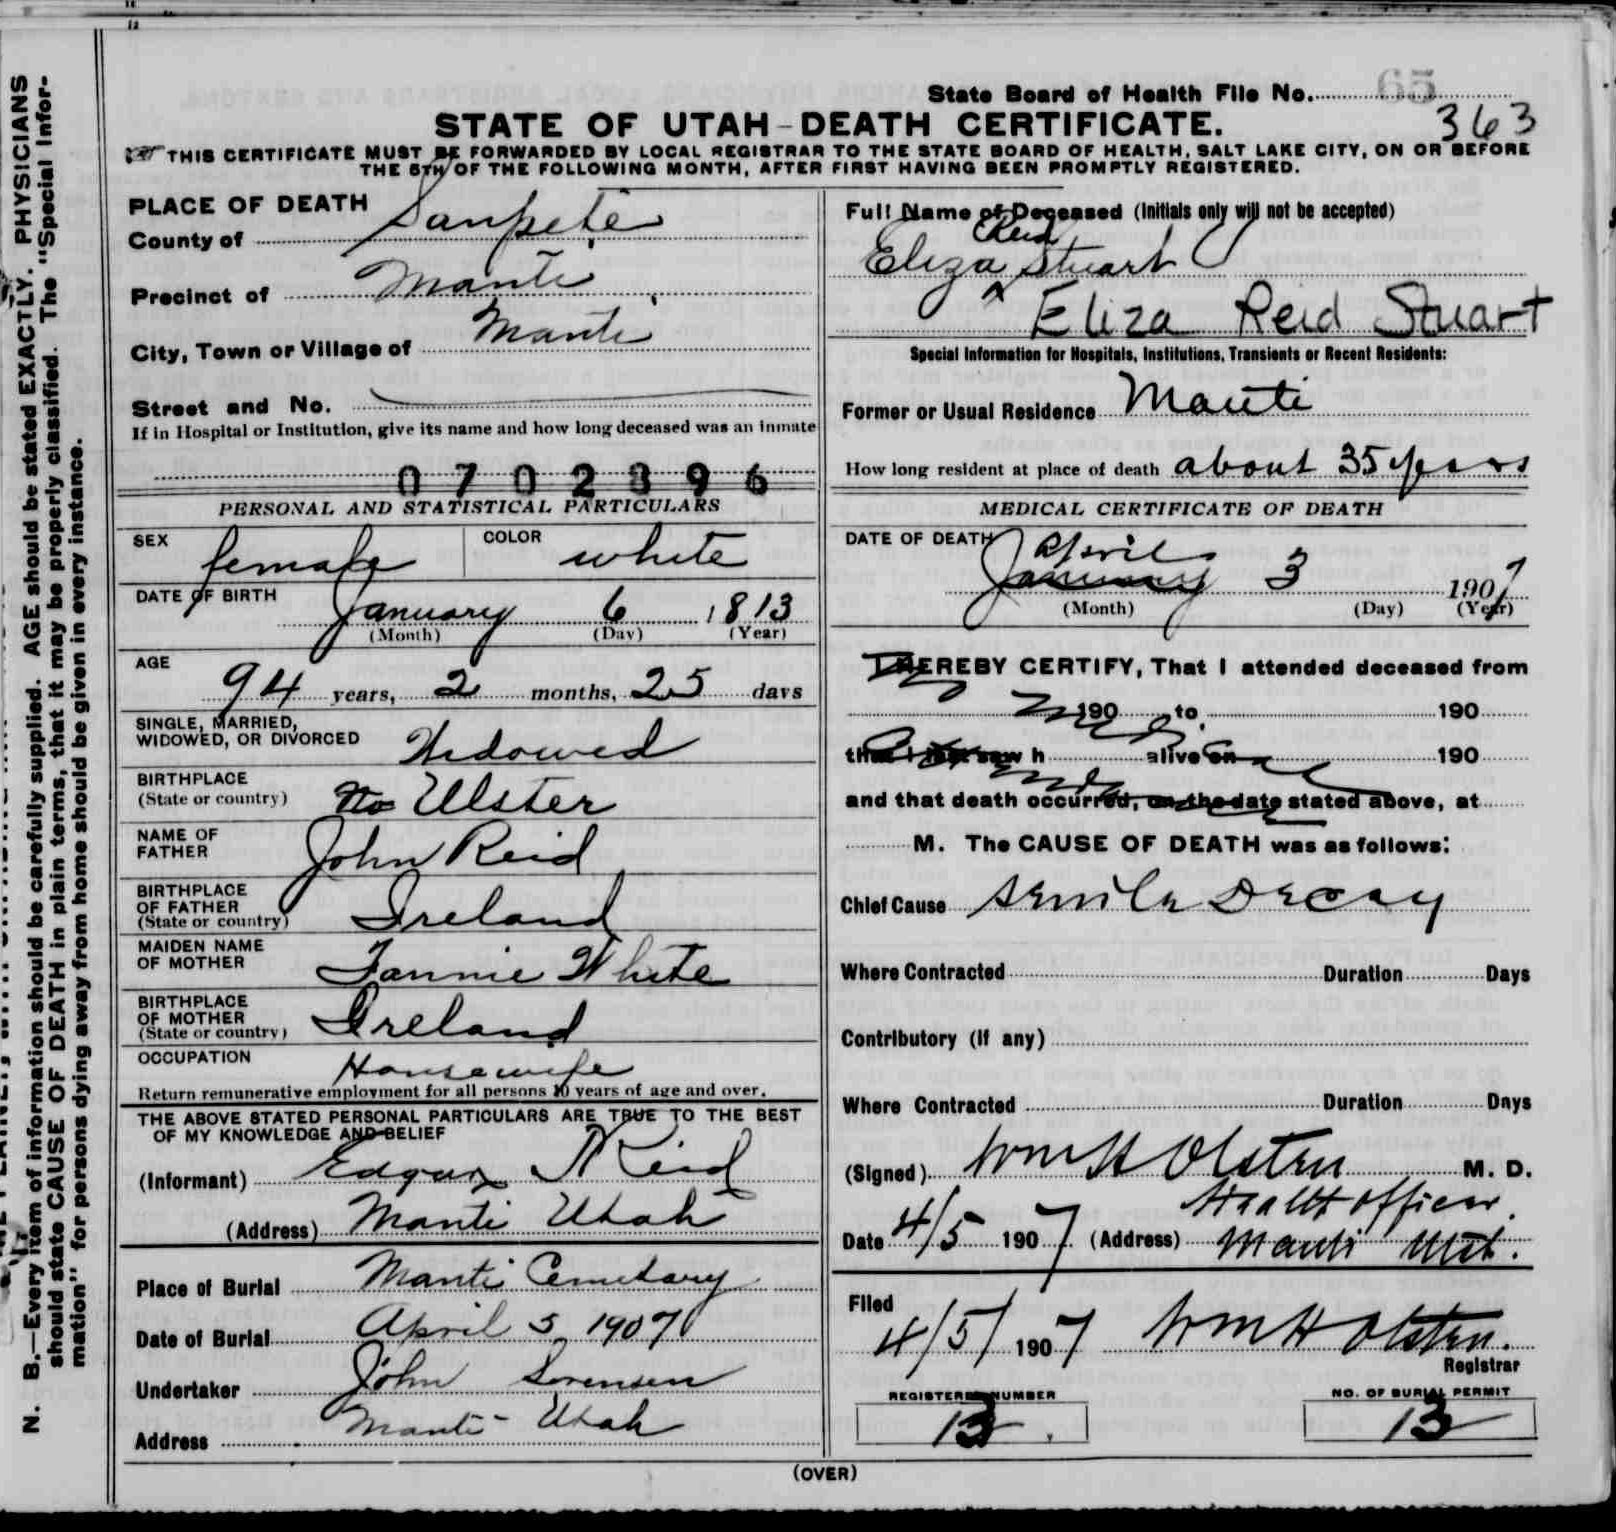 65
State Board of Health File No.
363
STATE OF UTAH-DEATH CERTIFICATE.
THIS CERTIFICATE MUST BE FORWARDED BY LOCAL REGISTRAR TO THE STATE BOARD OF HEALTH, SALT LAKE CITY, ON OR BEFORE
THE 5TH OF THE FOLLOWING MONTH, AFTER FIRST HAVING BEEN PROMPTLY REGISTERED.
N. B.—Every item of information should be carefully supplied. AGE should be stated EXACTLY. PHYSICIANS
should state CAUSE OF DEATH in plain terms, that it may be properly classified. The "Special Infor-
mation" for persons dying away from home should be given in every instance.
PLACE OF DEATH
County of Sanpete
Precinct of Manti
City, Town or Village of Manti
Street and No.
If in Hospital or Institution, give its name and how long deceased was an inmate
0702396
PERSONAL AND STATISTICAL PARTICULARS
SEX female COLOR white
DATE OF BIRTH January 6 1813
(Month) (Day) (Year)
AGE
94 years, 2 months, 25 days
SINGLE, MARRIED,
WIDOWED, OR DIVORCED Widowed
BIRTHPLACE
(State or country) Ulster
NAME OF
FATHER John Reid
BIRTHPLACE
OF FATHER
(State or country) Ireland
MAIDEN NAME
OF MOTHER Fannie White
BIRTHPLACE
OF MOTHER
(State or country) Ireland
OCCUPATION Housewife
Return remunerative employment for all persons 10 years of age and over.
THE ABOVE STATED PERSONAL PARTICULARS ARE TRUE TO THE BEST
OF MY KNOWLEDGE AND BELIEF
(Informant) Edgar Reid
(Address) Manti Utah
Place of Burial Manti Cemetary
Date of Burial April 5 1907
Undertaker John Sorensen
Address Manti - Utah
Full Name of Deceased (Initials only will not be accepted)
Reid
Eliza Stuart
x Eliza Reid Stuart
Special Information for Hospitals, Institutions, Transients or Recent Residents:
Former or Usual Residence Manti
How long resident at place of death about 35 years
MEDICAL CERTIFICATE OF DEATH
DATE OF DEATH April
January 3 1907
(Month) (Day) (Year)
I HEREBY CERTIFY, That I attended deceased from
190 to 190
that I last saw h alive on 190
and that death occurred, on the date stated above, at
M. The CAUSE OF DEATH was as follows:
Chief Cause Senile Decay
Where Contracted Duration Days
Contributory (If any)
Where Contracted Duration Days
(Signed) Wm H Olsten M. D.
Health officer.
Date 4/5 1907 (Address) Manti Utah.
Filed
4/5/ 1907 Wm H Olsten.
Registrar
REGISTERED NUMBER NO. OF BURIAL PERMIT
13 13
(OVER)